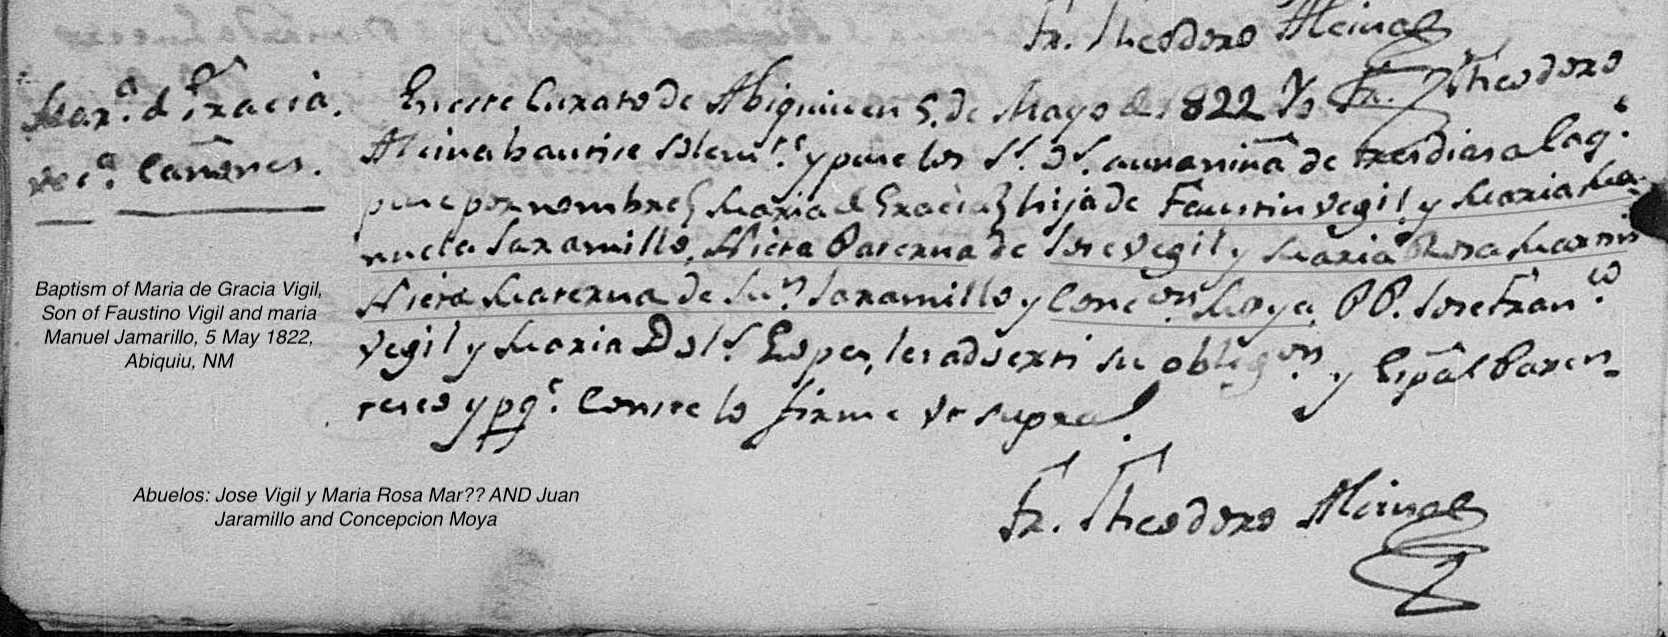 Fr. Theodoro Alcina
Mar.ª d Gracia.
vec.ª Cañones.
En este Curato de Abiquiu en 5. de Mayo de 1822 Yo Fr. Theodoro
Alcina bautise solem.te y puse los S.s O.s a una niña de tres dias a la q.e
puse por nombre Maria d Gracia hija de Faustin Vegil y Maria Ma-
nuela Xaramillo, Nieta Paterna de Jose Vegil y Maria Rosa Martin
Nieta Materna de Ju.n Xaramillo y Conc.on Moya. PP. Jose Fran.co
Vegil y Maria Dol.s Lopes, les adverti su oblig.on y Espãl Paren-
tesco y pq.e Conste lo firme ut supra.
Fr. Theodoro Alcina
Baptism of Maria de Gracia Vigil,
Son of Faustino Vigil and maria
Manuel Jamarillo, 5 May 1822,
Abiquiu, NM
Abuelos: Jose Vigil y Maria Rosa Mar?? AND Juan
Jaramillo and Concepcion Moya